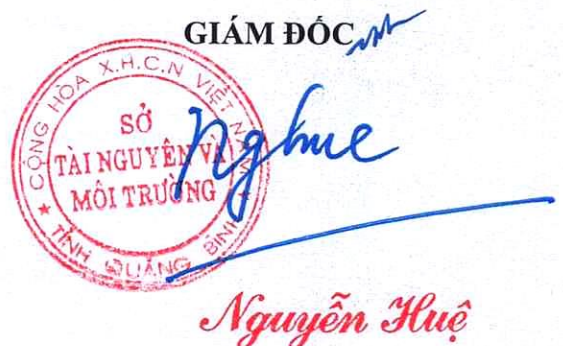 GIÁM ĐỐC
CỘNG HÒA X.H.C.N VIỆT NAM
SỞ
TÀI NGUYÊN VÀ
MÔI TRƯỜNG
★ TỈNH QUẢNG BÌNH ★
Nghue
Nguyễn Huệ